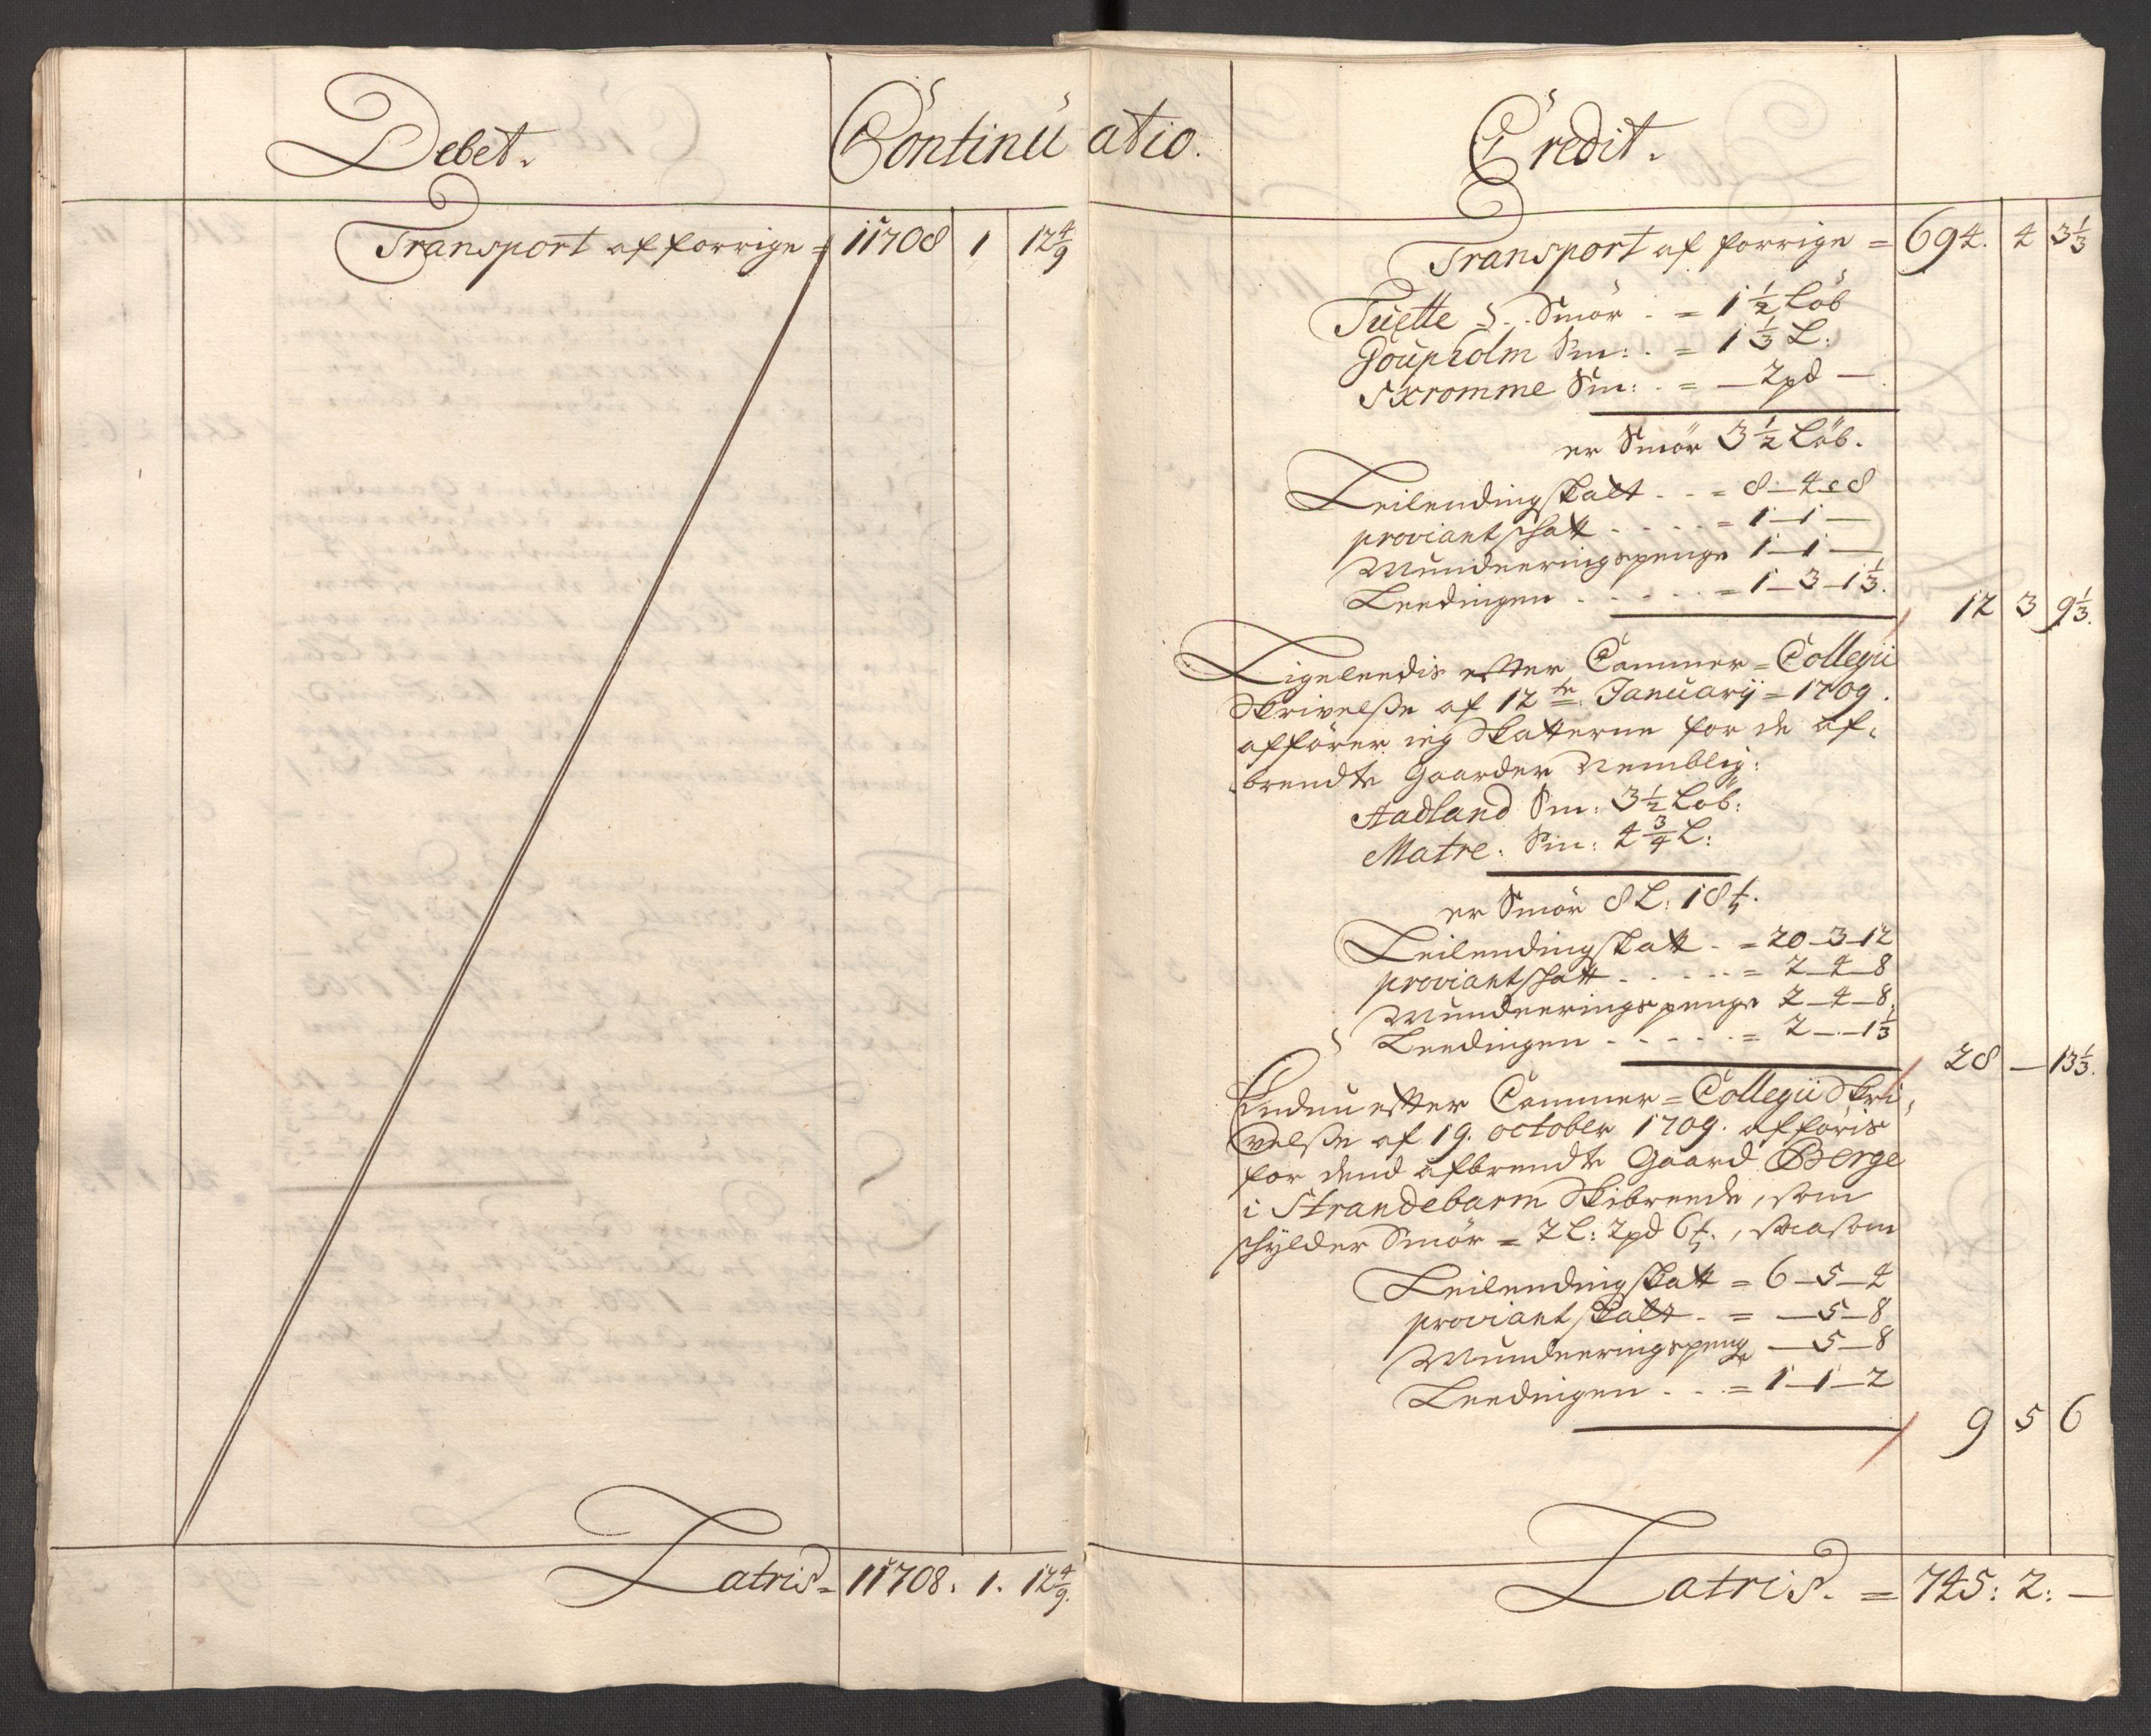 Debet.
Continu
Transport af forrige = 11708 1 12 4/9
Latris = 11708. 1. 12 4/9.
atio.
Credit.
Transport af forrige = 694. 4 3 1/3
Tuette S. . Smör . = 1 1/2 Löb
Goupholm Sm: . = 1 1/3 L:
Skromme Sm: . = — 2 pd —
er Smör 3 1/2 Löb.
Leilendingskatt . . = 8 – 4 – 8
proviantschatt . . . . = 1 – 1 –
Munderingspenge 1 – 1 –
Leedingen . . . . . = 1 – 3 – 1 1/3.
12 3 9 1/3.
Ligeleedis efter Cammer = Collegii
Skrivelsse af 12te January = 1709.
afförer ieg Skatterne for de af-
brendte Gaarder Nemblig:
Aadland Sm: 3 1/2 Löb:
Matre: Sm: 4 3/4 L:
er Smör 8 L: 18
Leilendingskatt . = 20 – 3 – 12
proviantschatt . . . . . = 2 – 4 – 8
Munderings penge 2 – 4 – 8.
Leedingen . . . . . = 2 – . – 1 1/3
28 — 13 1/3.
Endnu efter Cammer = Collegii Skri-
velsse af 19. october 1709. afföris
for dend afbrendte Gaard Berge
i Strandebarm Skibreede, som
schylder Smör = 2 L: 2 pd 6, saasom
Leilendingskatt = 6 – 5 – 4
proviantskatt . = — 5 – 8
Munderingspenge — 5 – 8
Leedingen . . . = 1 – 1 – 2
9 5 6
Latris. = 745: 2: —